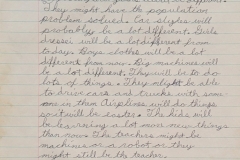 They might have the population
problem solved. Car styles will
probably be a lot different. Girls
dresses will be a lot different from
today. Boys clothes will be a lot
different from now. Big machines will
be a lot different. They will be to do
lots of things. They might be able
to drive cars and trucks with some
one in them. Airplines will do things
so it will be easier. The kids will
be learning a lot more new things
than now. The teachers might be
machines or a robot or they
might still be the teacher.